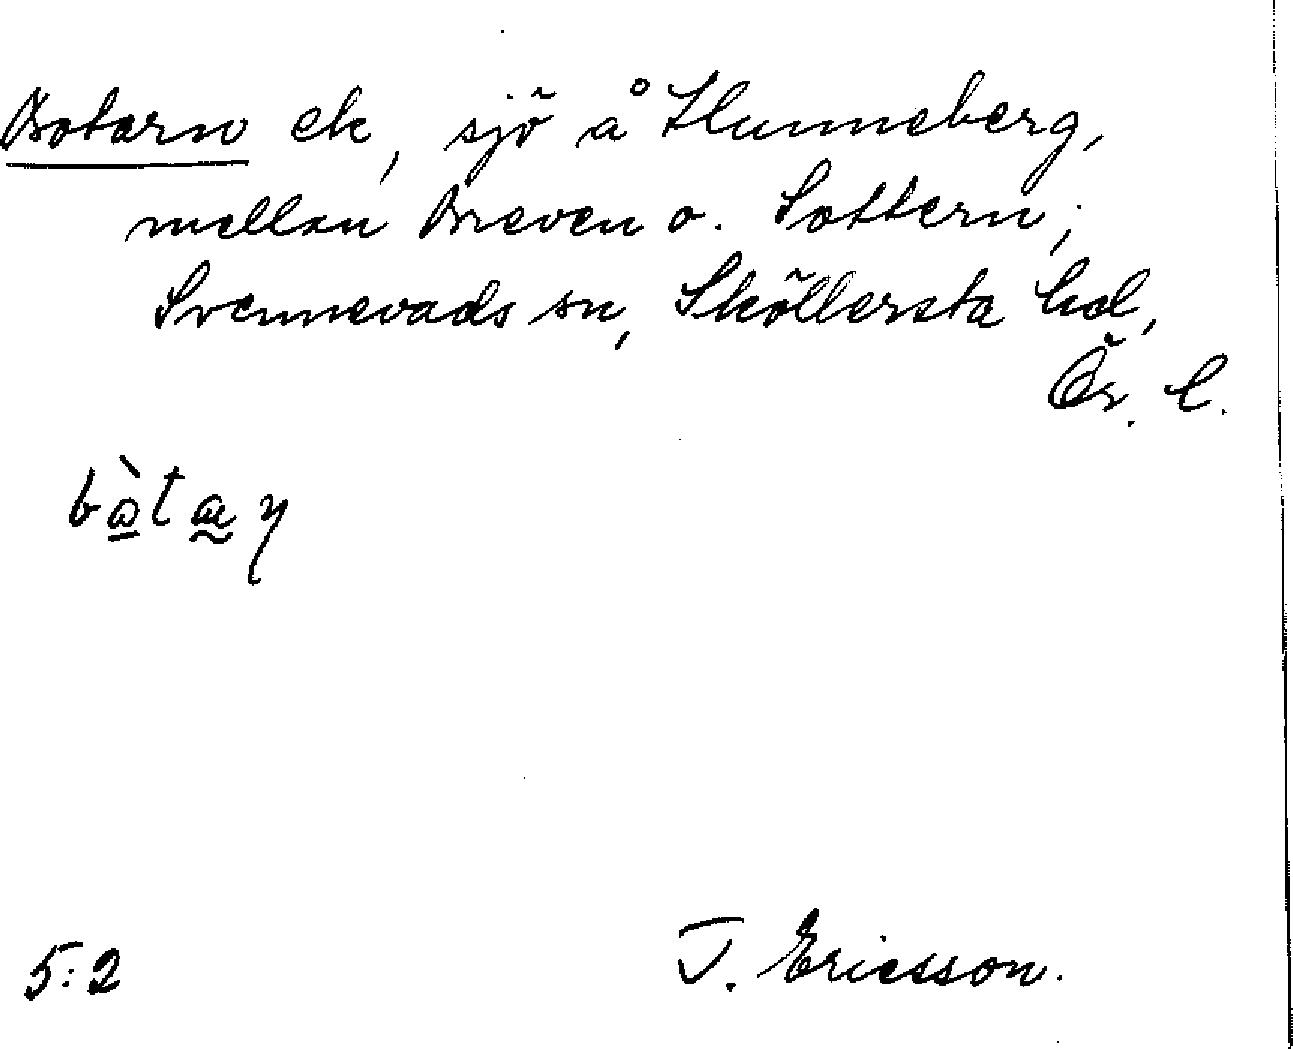 Botarn ek, sjö å Hunneberg,
mellan Breven o. Sottern;
Svennevads sn, Sköllersta hd,
Ör. l.
bòtæn
5:2
J. Ericsson.